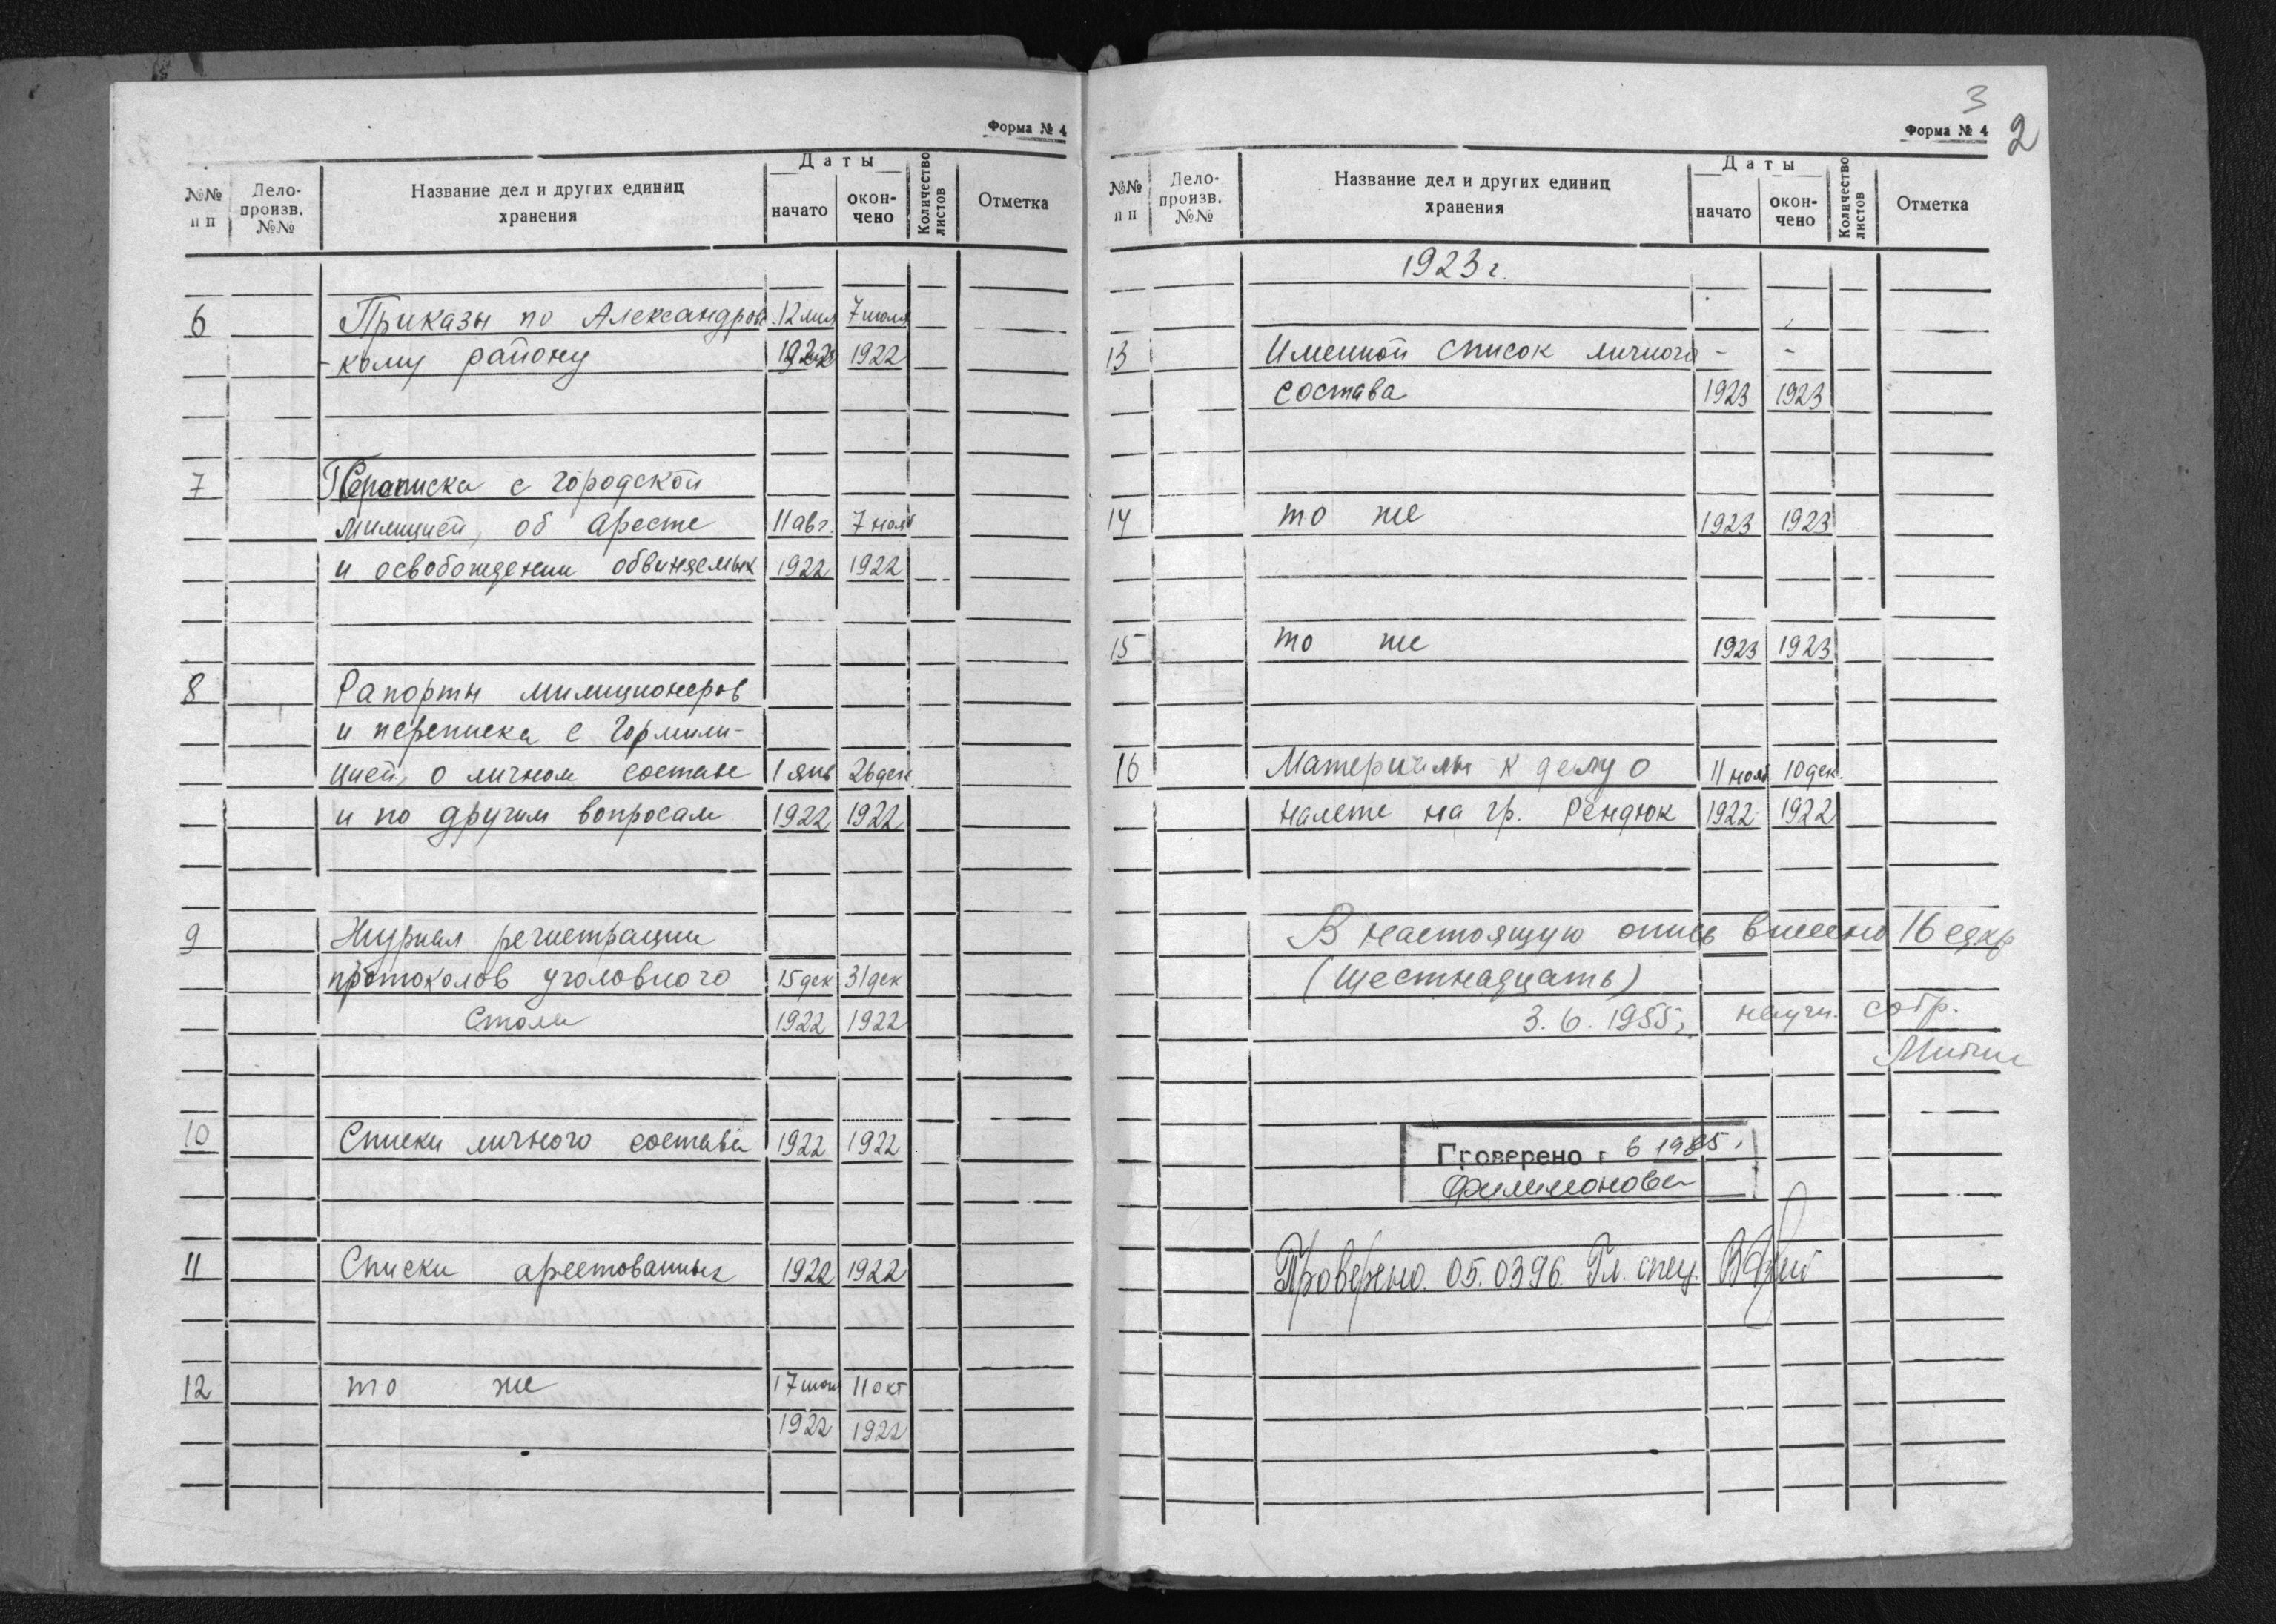 Форма № 4
№№ п п
Дело-произв. №№
Название дел и других единиц хранения
Даты
начато
окон-чено
Количество листов
Отметка
6 Приказы по Александровс 7 июля
-кому району 1922
7 Переписка с городской
милицией, об аресте 11 авг. 7 нояб
и освобождении обвиняемых 1922 1922
8 Рапорты милиционеров
и переписка с Гормили-
цией, о личном составе 1 янв 26 дек
и по другим вопросам 1922 1922
9 Журнал регистрации
протоколов уголовного 15 дек 31 дек
стола 1922 1922
10 Списки личного состава 1922 1922
11 Списки арестованных 1922 1922
12 то же 17 11 окт
1922 1922
3
Форма № 4
2
№№ п п
Дело-произв. №№
Название дел и других единиц хранения
Даты
начато
окон-чено
Количество листов
Отметка
1923 г.
13 Именной список личного - -
состава 1923 1923
14 то же 1923 1923
15 то же 1923 1923
16 Материалы к делу о 11 нояб 10 дек.
налете на гр. Рендюк 1922 1922
В настоящую опись внесено 16 ед хр
(шестнадцать)
3.6.1955 г. научн. сотр.
Проверено в 1985 г.
Филимонова
Проверено. 05.03 96. Гл. спец.